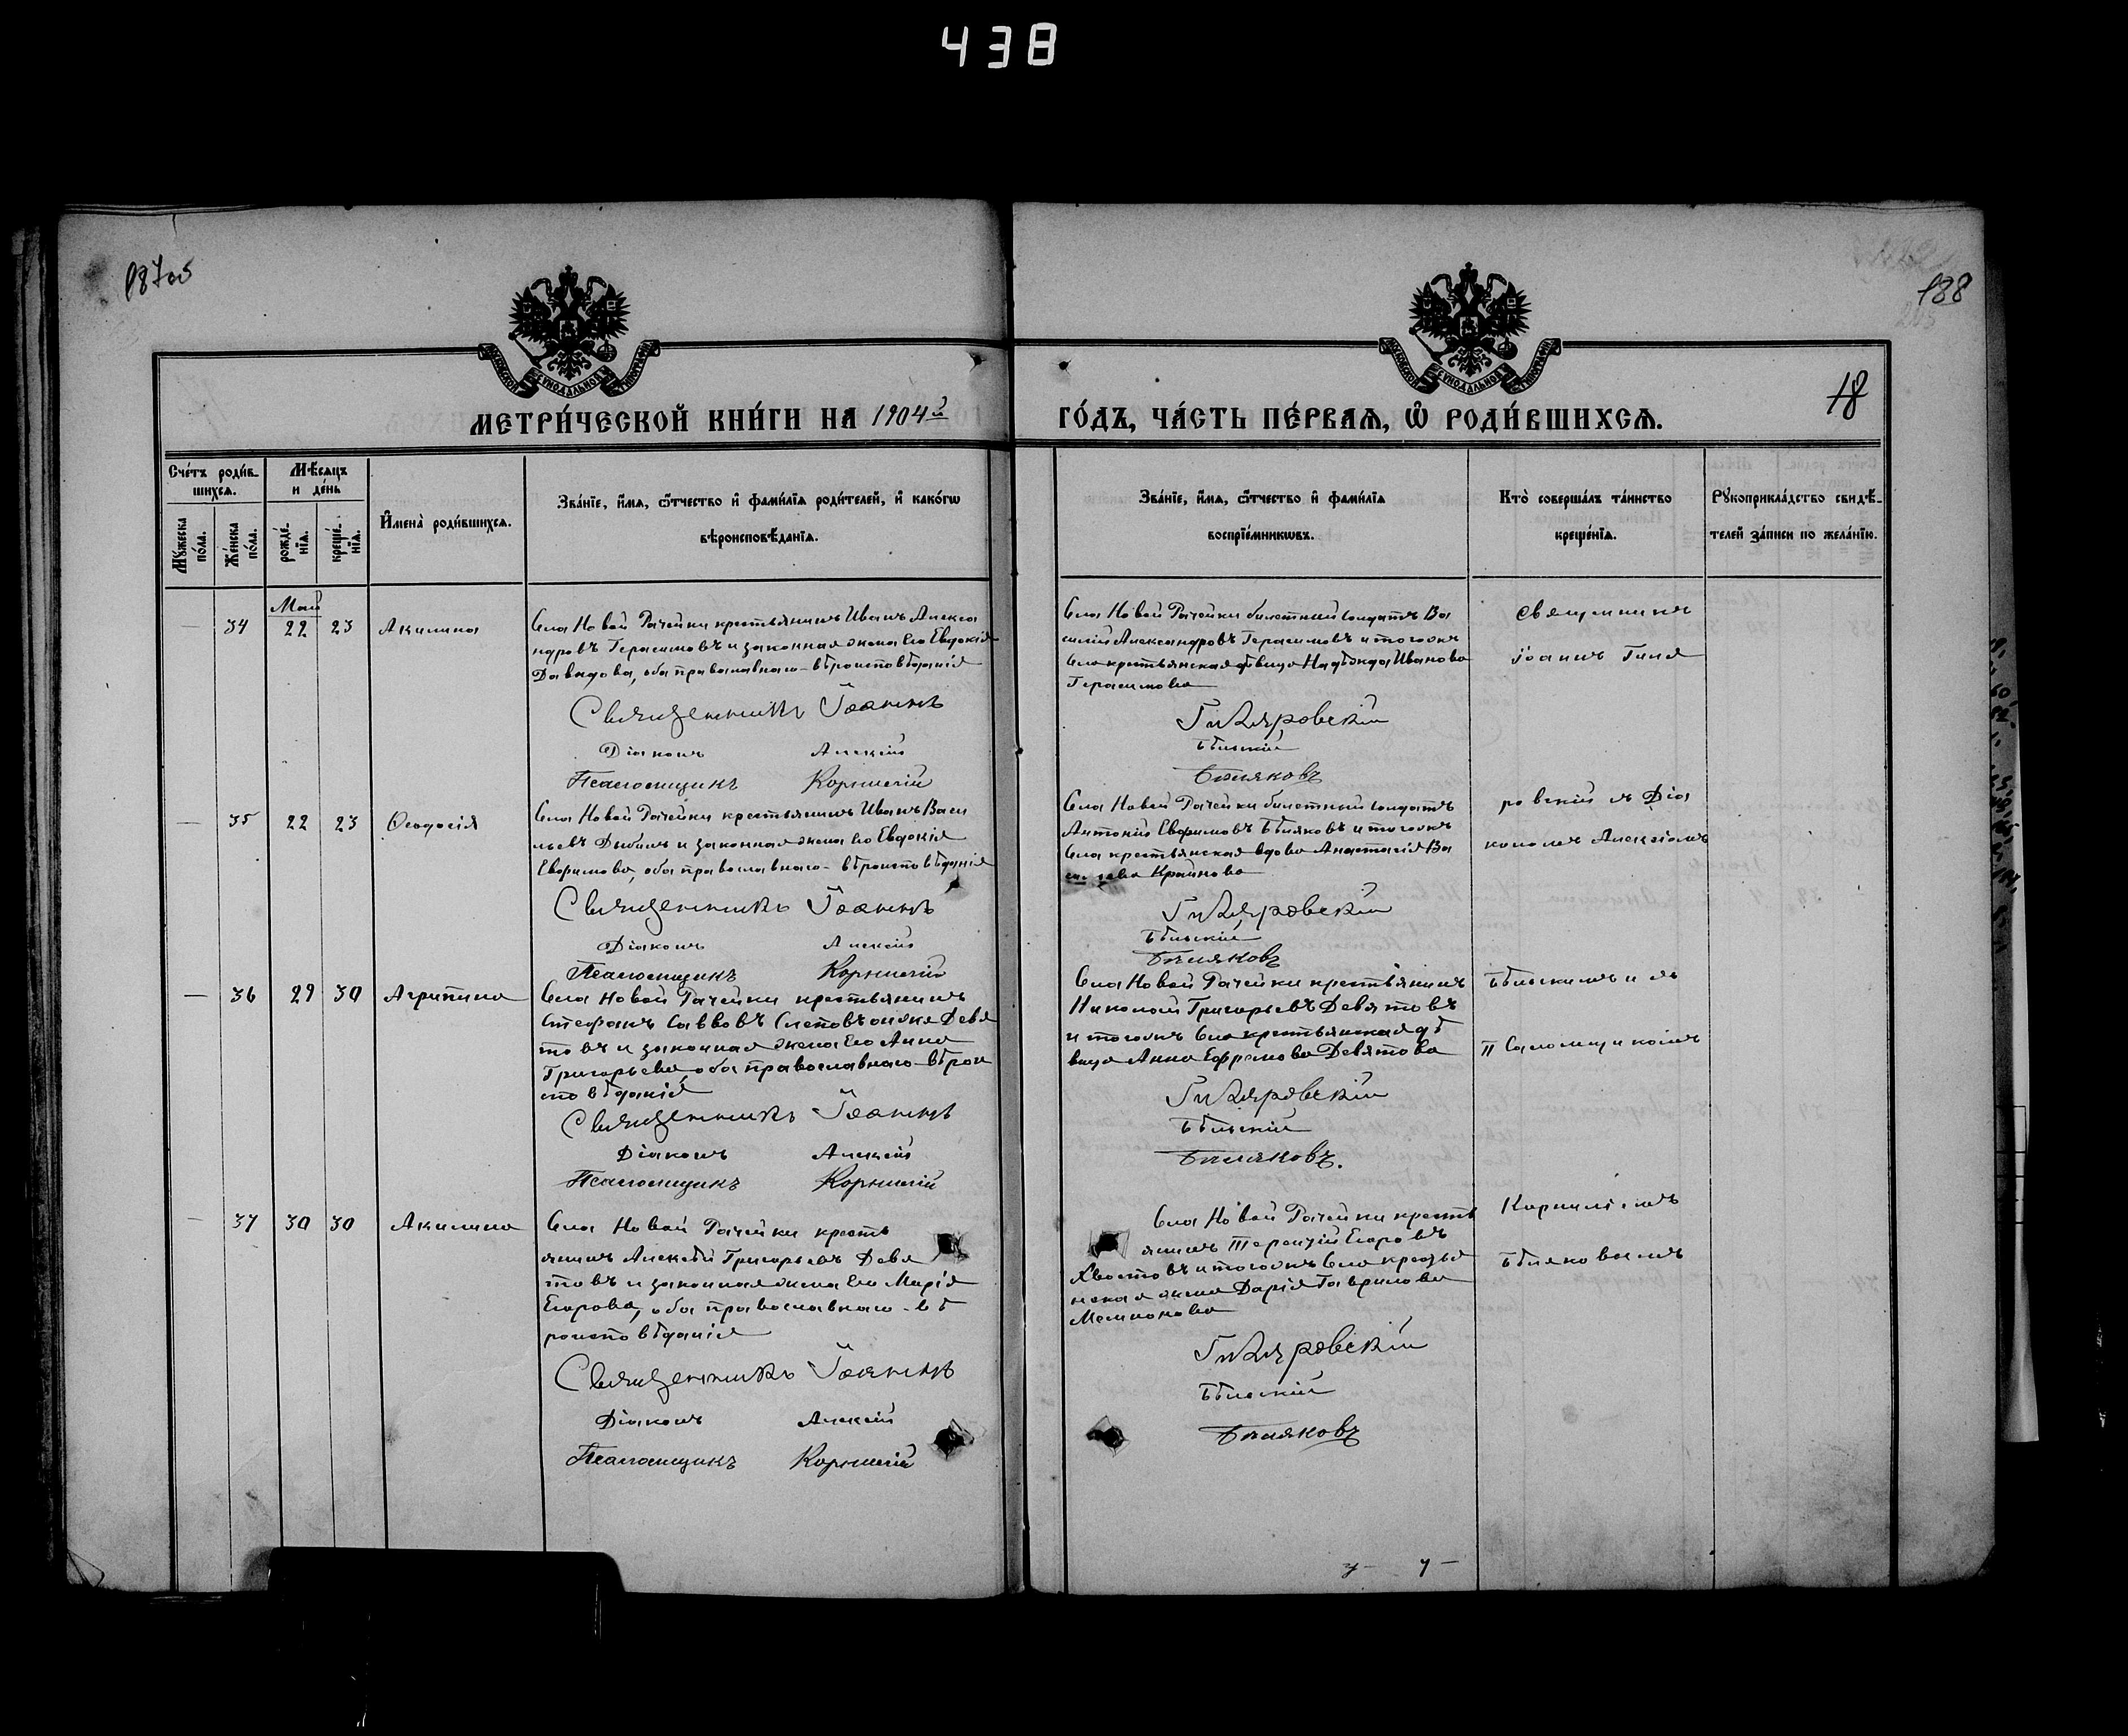 438
187об
188
18
МЕТРИ́ЧЕСКОЙ КНИ́ГИ НА 1904й
ГО́ДЪ, ЧА́СТЬ ПЕ́РВАѦ, Ѽ РОДИ́ВШИХСѦ.
Сче́тъ роди́в-
шихсѧ.
Мѣ́сѧцъ
и де́нь
Мꙋ́жеска
по́ла.
Же́нска
по́ла.
рожде́-
нїѧ.
креще́-
нїѧ.
И҆мена̀ роди́вшихсѧ.
Зва́нїе, и҆́мѧ, ѻ҆́тчество и҆ фами́лїѧ роди́телей, и҆ како́гѡ
вѣроисповѣ́данїѧ.
Зва́нїе, и҆́мѧ, ѻ҆́тчество и҆ фами́лїѧ
воспрїе́мникѡвъ.
Кто̀ соверша́лъ та́инство
креще́нїѧ.
Рꙋкоприкла́дство свидѣ́-
телей за́писи по жела́нїю.
Май
— 34 22 23 Акилина
Села Новой Рачейки крестьянинъ Иванъ Алекса
ндровъ Герасимовъ и законная жена его Евдокія
Давидова, оба православнаго вѣроисповѣданія
Священникъ Іоаннъ
Діаконъ Алексій
Псаломщикъ Корнилій
Села Новой Рачейки билетный солдатъ Ва
силій Александровъ Герасимовъ и тогожъ
села крестьянская дѣвица Надѣжда Иванова
Герасимова
Гиляровскій
Бѣльскій
Бѣляковъ
Священникъ
Іоаннъ Гиля
— 35 22 23 Ѳеодосія
Села Новой Рачейки крестьянинъ Иванъ Васи
льевъ и законная жена его Евдокія
Евфимова, оба православнаго вѣроисповѣданія
Священникъ Іоаннъ
Діаконъ Алексій
Псаломщикъ Корнилій
Села Новой Рачейки билетный солдатъ
Антоній Евфимовъ Бѣляковъ и тогожъ
села крестьянская вдова Анастасія Ва
Крайнова
Гиляровскій
Бѣльскій
Бѣляковъ
ровскій съ Діа
кономъ Алексіемъ
— 36 29 30 Агрипина
Села Новой Рачейки крестьянинъ
Стефанъ Савновъ онже Девя
товъ и законная жена его Анна
Григорьева оба православнаго вѣрои
сповѣданія
Священникъ Іоаннъ
Діаконъ Алексій
Псаломщикъ Корнилій
Села Новой Рачейки крестьянинъ
Николай Григорьевъ Девятовъ
и тогожъ села крестьянская дѣ
вица Анна Ефремова Девятова
Гиляровскій
Бѣльскій
Бѣляковъ.
Бѣльскимъ и съ
Псаломщикомъ
— 37 30 30 Акилина
Села Новой Рачейки кресть
янинъ Алексѣй Григорьевъ Девя
товъ и законная жена его Марія
Егорова, оба православнаго вѣ
роисповѣданія
Священникъ Іоаннъ
Діаконъ Алексій
Псаломщикъ Корнилій
Села Новой Рачейки кресть
янинъ Терентій Егоровъ
Хвостовъ и тогожъ села крестья
нская жена Дарія Гаврилова
Гиляровскій
Бѣльскій
Бѣляковъ
Корниліемъ
Бѣляковымъ